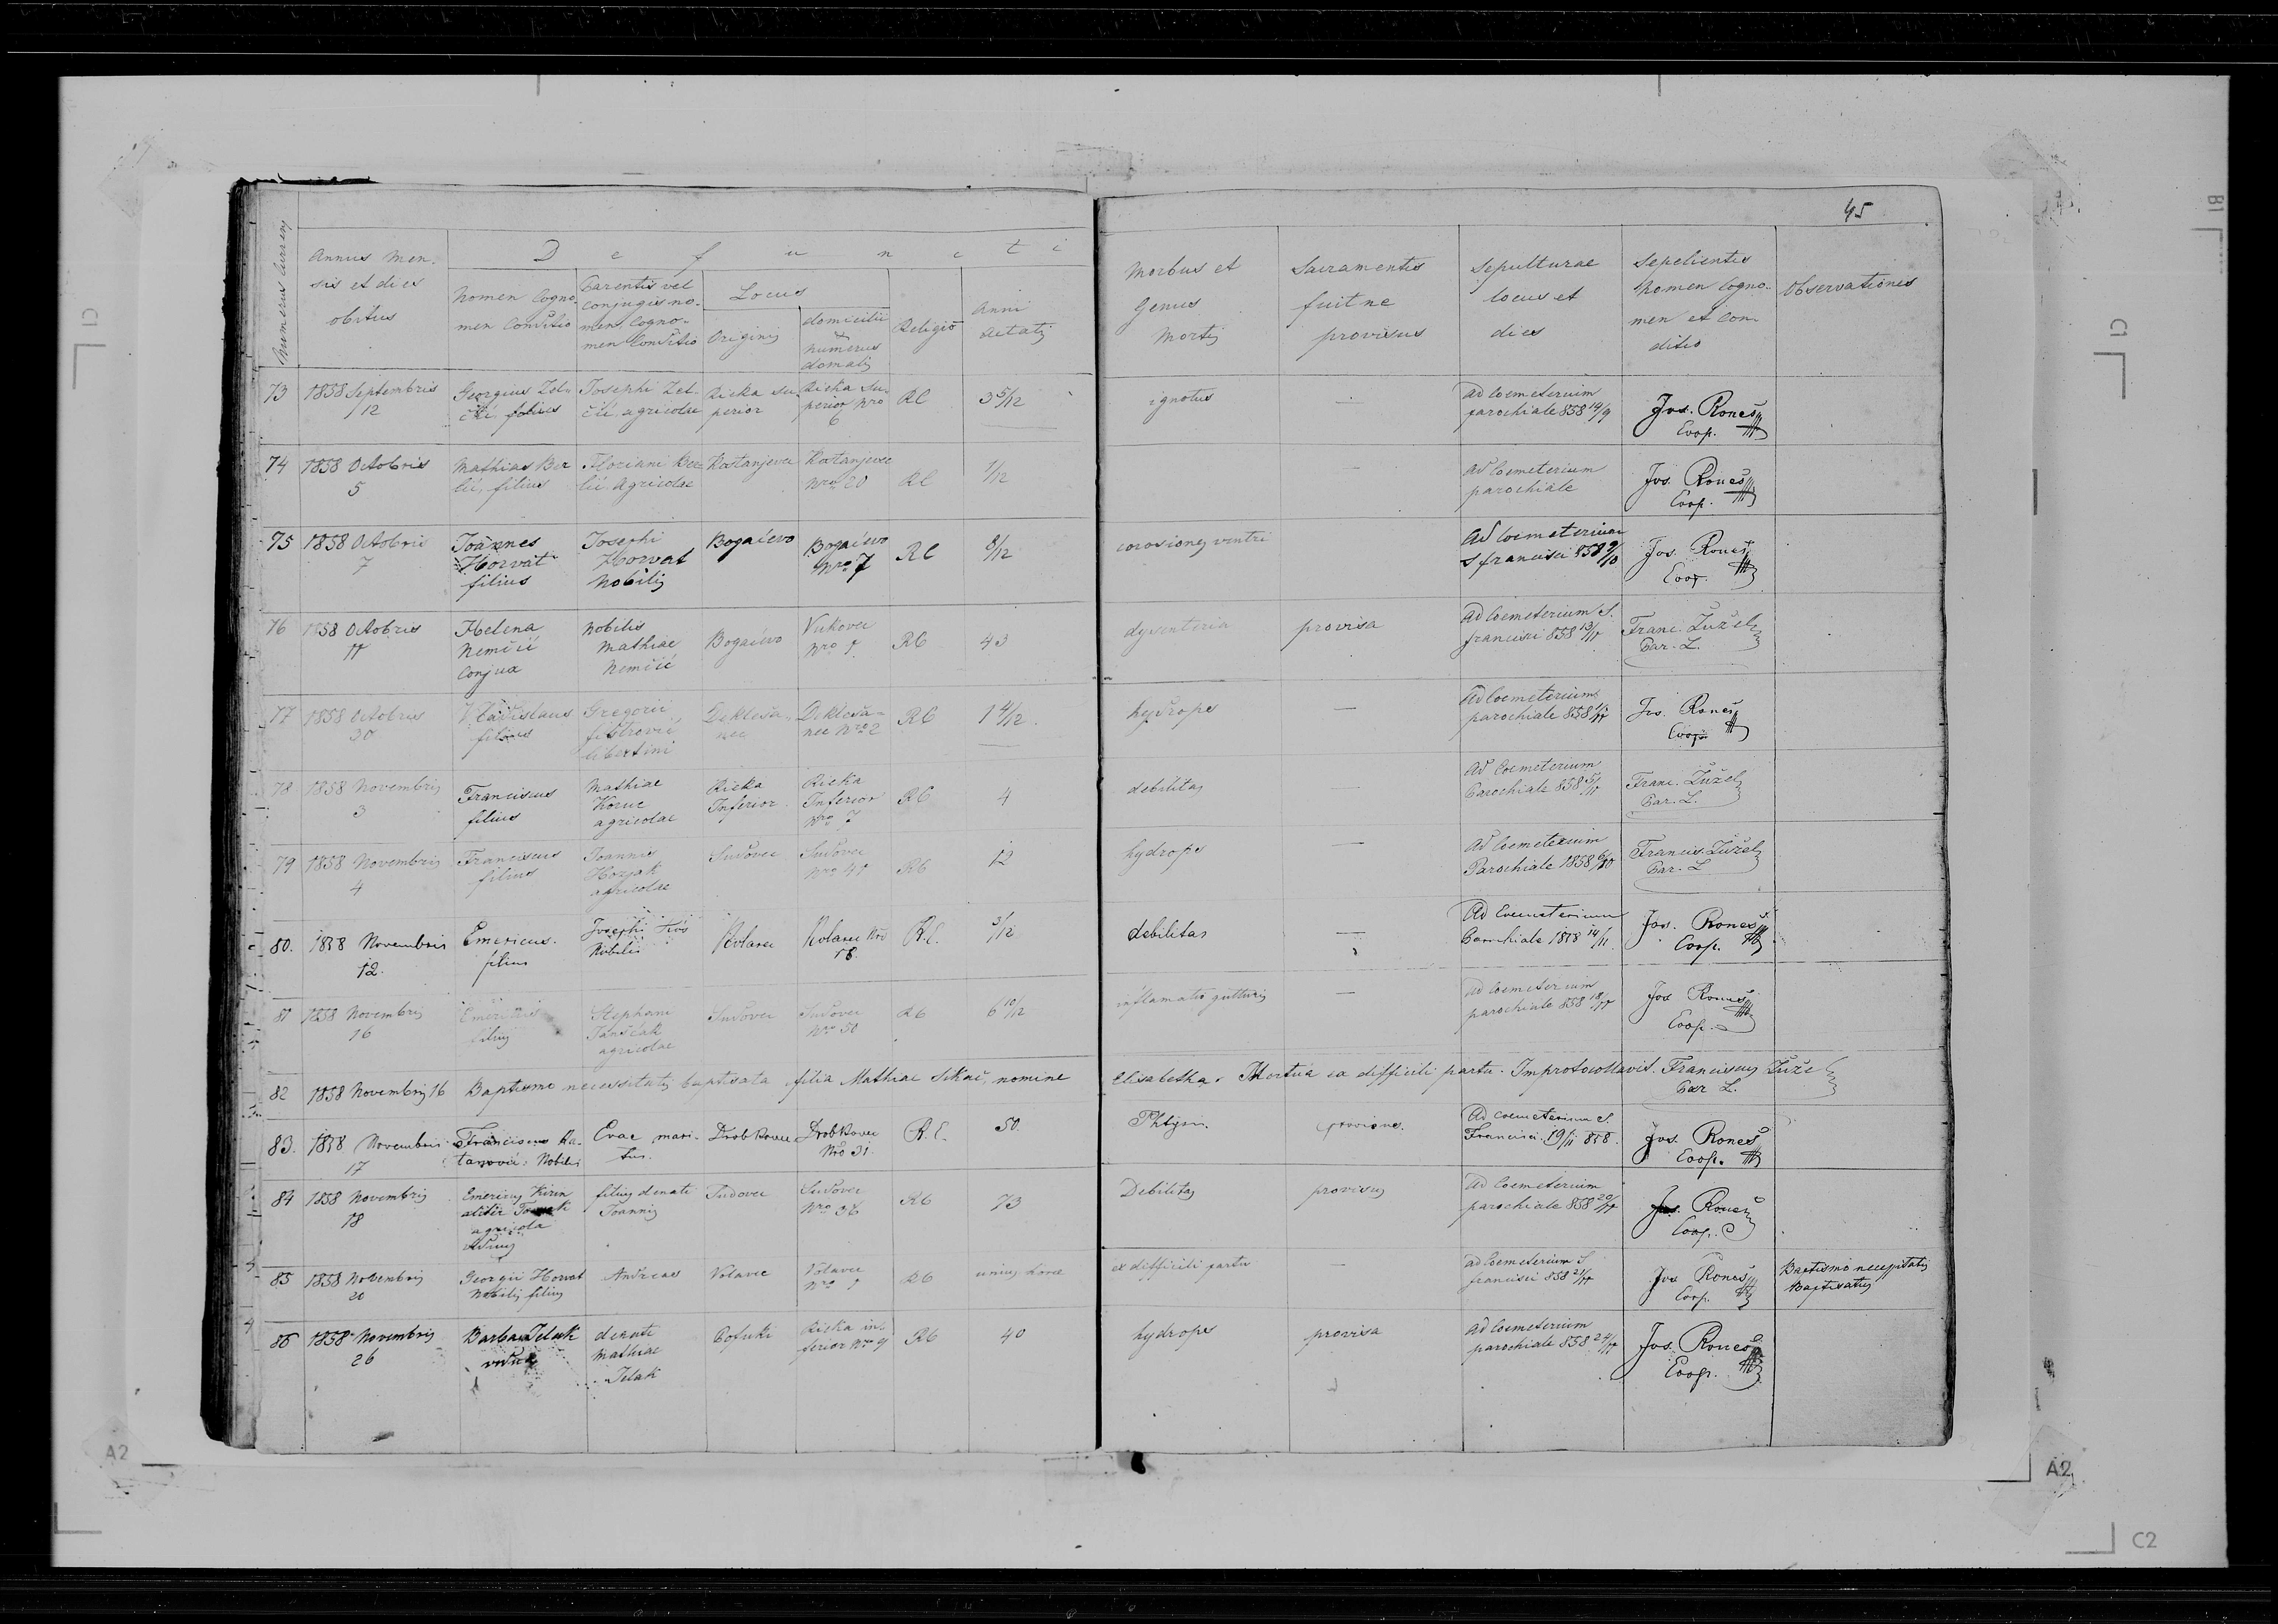 45
Numerus Currens
Annus Men-
sis et dies
obitus
Defuncti
Nomen Cogno-
men Conditio
Parentis vel
Conjugis no-
men, Cogno-
men Conditio
Locus
Originis
domicilii
numerus
domatis
Religio
Anni
aetatis
Morbus et
Genus
Mortis
Sacramentis
fuit ne
provisus
Sepulturae
locus et
dies
Sepelientis
Nomen Cogno-
men et Con-
ditio
Observationes
73
1858 Septembris
12
Georgius
filius
Josephi
agricolae
Ricka su-
perior
Ricka Su-
perior Nro
6
RC
3 5/12
ignotus
—
ad Coemeterium
parochiale 858 14/9
Jos. Roneš
Coop.
74
1858 Octobris
5
Mathias Ber
lić, filius
Floriani Ber-
lić Agricolae
Kostanjevec
Kostanjevec
Nro 20
RC
1/12
—
ad Coemeterium
parochiale
Jos. Roneš
Coop.
75
1858 Octobris
7
Joannes
Horvat
filius
Josephi
Horvat
Nobilis
Bogaćevo
Bogaćevo
Nro 7
RC
8/12
corosiones ventri
Ad Coemeterium
S francisci 858 9/10
Jos. Roneš
Coop.
76
1858 Octobris
11
Helena
Nemčić
Conjux
Nobilis
Mathiae
Nemčić
Bogaćevo
Vukovec
Nro 1
RC
43
dysenteria
provisa
ad Coemeterium S.
francisci 858 13/10
Franc. Žužel
Par. L.
77
1858 Octobris
30
Vladislaus
filius
Gregorii
libertini
nec Nro 2
RC
1 4/12
hydrops
—
ad Coemeterium
parochiale 858 1/11
Jos. Roneš
Coop.
78
1858 Novembris
3
Franciscus
filius
Mathiae
Koruc
agricolae
Ricka
Inferior
Ricka
Inferior
Nro 7
RC
4
debilitas
—
Ad Coemeterium
Parochiale 858 5/11
Franc. Žužel
Par. L.
79
1858 Novembris
4
Franciscus
filius
Joannis
Horjak
agricolae
Sudovec
Sudovec
Nro 41
RC
12
hydrops
—
Ad Coemeterium
Parochiale 1858
Francis. Žužel
Par. L
80.
1858 Novembris
12.
Emericus.
filius
Josephi
Nobilis
Kolarec
Kolarec Nro
18.
R.C.
3/12
debilitas
—
Ad Coemeterium
Parochiale 1858 14/11.
Jos. Roneš
Coop.
81
1858 Novembris
16
Emericus
filius
Stephani
Jančak
agricolae
Sudovec
Sudovec
Nro 50
RC
6 10/12
inflamatio gutturis
—
ad Coemeterium
parochiale 858 18/11
Jos Roneš
Coop.
82
1858 Novembris 16
Baptismo necessitatis baptisata filia Mathiae Sikač, nomine
Elisabetha. Mortua ex difficili partu. Improtocollavit. Franciscus Žužel
Par L.
83.
1858 Novembris
17
Franciscus Ra-
tanović. Nobilis
Evae mari-
tus.
Drobkovec
Drobkovec
Nro 31.
R.C.
50.
Phtysis
provisus.
Ad coemeterium S.
Francisci. 19/11 858.
Jos. Roneš
Coop.
84
1858 Novembris
18
Emericus Kirin
aliter
agricola
viduus
filius denati
Joannis
Sudovec
Sudovec
Nro 36
RC
73
Debilitas
provisus
ad Coemeterium
parochiale 858 20/11
Jos. Roneš
Coop.
85
1858 Novembris
20
Georgii Horvat
Nobilis filius
Andreas
Volavec
Volavec
Nro 1
RC
unius horae
ex difficili partu
—
ad Coemeterium S
francisci 858 21/11
Jos Roneš
Coop.
Baptismo necessitatis
Baptisatus
86
1858 Novembris
26
Barbara Jelak
vidua
denati
Mathiae
Jelak
Ricka in-
ferior Nro 9
RC
40
hydrops
provisa
ad Coemeterium
parochiale 858
Jos. Roneš
Coop.
C1
C1
B1
A2
A2
C2